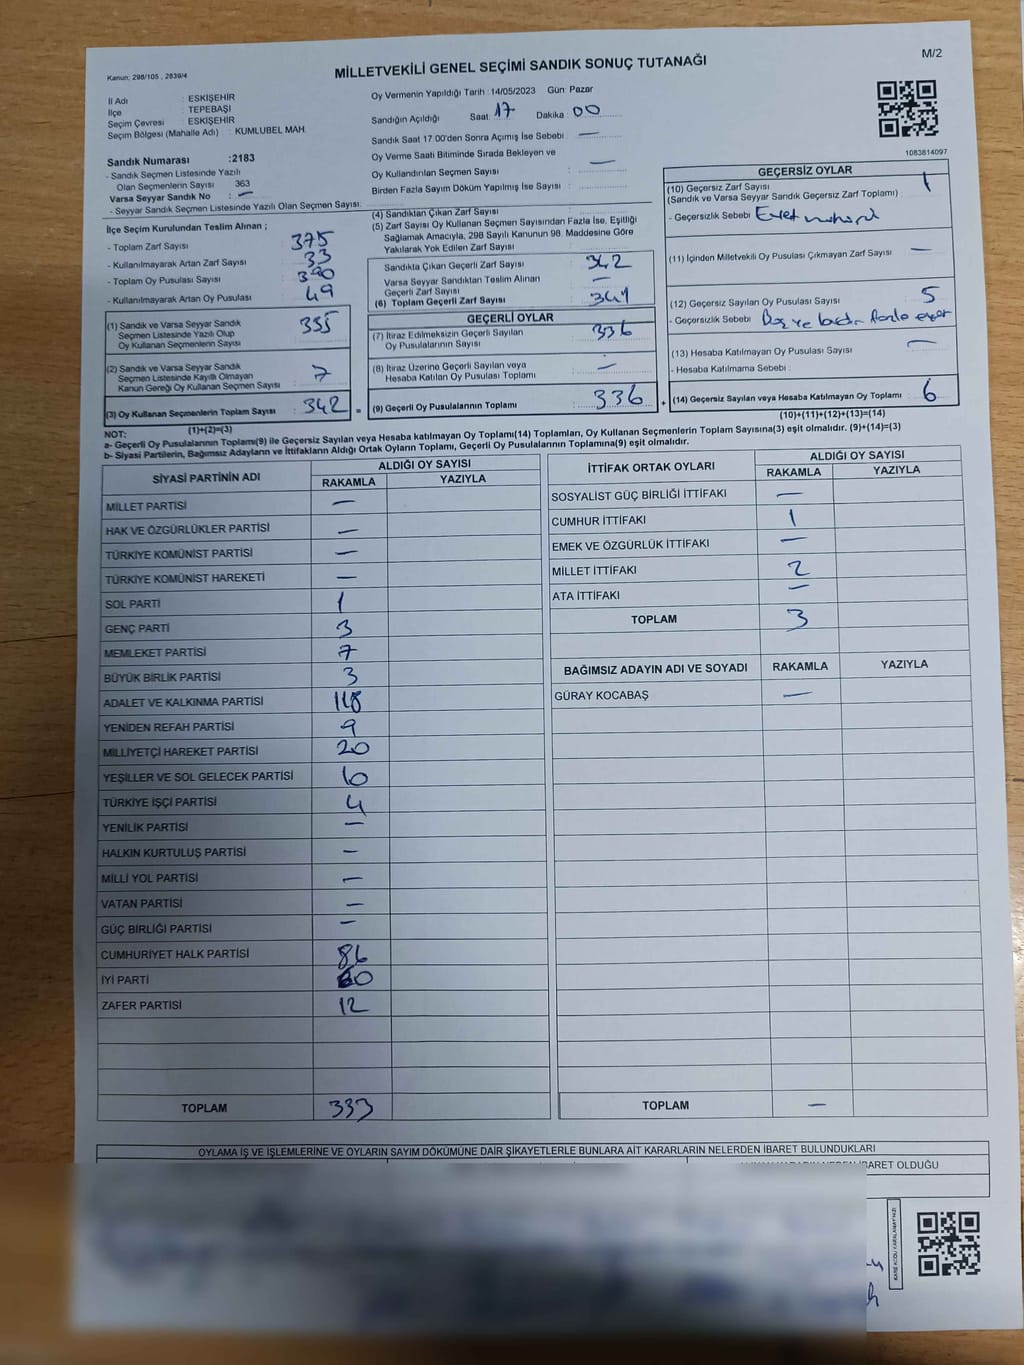 Kanun: 298/105 , 2839/4
M/2
MİLLETVEKİLİ GENEL SEÇİMİ SANDIK SONUÇ TUTANAĞI
İl Adı : ESKİŞEHİR
İlçe : TEPEBAŞI
Seçim Çevresi : ESKİŞEHİR
Seçim Bölgesi (Mahalle Adı) : KUMLUBEL MAH.
Sandık Numarası :2183
- Sandık Seçmen Listesinde Yazılı
Olan Seçmenlerin Sayısı 363
Varsa Seyyar Sandık No : —
- Seyyar Sandık Seçmen Listesinde Yazılı Olan Seçmen Sayısı:
Oy Vermenin Yapıldığı Tarih : 14/05/2023 Gün: Pazar
Sandığın Açıldığı Saat: 17 Dakika : 00
Sandık Saat 17.00'den Sonra Açımış İse Sebebi : —
Oy Verme Saati Bitiminde Sırada Bekleyen ve
Oy Kullandırılan Seçmen Sayısı : —
Birden Fazla Sayım Döküm Yapılmış İse Sayısı :
1083814097
İlçe Seçim Kurulundan Teslim Alınan ;
- Toplam Zarf Sayısı : 375
- Kullanılmayarak Artan Zarf Sayısı : 33
- Toplam Oy Pusulası Sayısı : 390
- Kullanılmayarak Artan Oy Pusulası : 49
(1) Sandık ve Varsa Seyyar Sandık
Seçmen Listesinde Yazılı Olup
Oy Kullanan Seçmenlerin Sayısı : 335
(2) Sandık ve Varsa Seyyar Sandık
Seçmen Listesinde Kayıtlı Olmayan
Kanun Gereği Oy Kullanan Seçmen Sayısı : 7
(3) Oy Kullanan Seçmenlerin Toplam Sayısı : 342
(1)+(2)=(3)
(4) Sandıktan Çıkan Zarf Sayısı :
(5) Zarf Sayısı Oy Kullanan Seçmen Sayısından Fazla İse, Eşitliği
Sağlamak Amacıyla, 298 Sayılı Kanunun 98. Maddesine Göre
Yakılarak Yok Edilen Zarf Sayısı :
Sandıkta Çıkan Geçerli Zarf Sayısı : 342
Varsa Seyyar Sandıktan Teslim Alınan
Geçerli Zarf Sayısı : —
(6) Toplam Geçerli Zarf Sayısı : 341
GEÇERLİ OYLAR
(7) İtiraz Edilmeksizin Geçerli Sayılan
Oy Pusulalarının Sayısı : 336
(8) İtiraz Üzerine Geçerli Sayılan veya
Hesaba Katılan Oy Pusulası Toplamı : —
= (9) Geçerli Oy Pusulalarının Toplamı : 336
GEÇERSİZ OYLAR
(10) Geçersiz Zarf Sayısı : 1
(Sandık ve Varsa Seyyar Sandık Geçersiz Zarf Toplamı)
- Geçersizlik Sebebi : Evet
(11) İçinden Milletvekili Oy Pusulası Çıkmayan Zarf Sayısı : —
(12) Geçersiz Sayılan Oy Pusulası Sayısı : 5
- Geçersizlik Sebebi : Boş ve birden fazla
(13) Hesaba Katılmayan Oy Pusulası Sayısı : —
- Hesaba Katılmama Sebebi :
+ (14) Geçersiz Sayılan veya Hesaba Katılmayan Oy Toplamı : 6
(10)+(11)+(12)+(13)=(14)
NOT:
a- Geçerli Oy Pusulalarının Toplamı(9) ile Geçersiz Sayılan veya Hesaba katılmayan Oy Toplamı(14) Toplamları, Oy Kullanan Seçmenlerin Toplam Sayısına(3) eşit olmalıdır. (9)+(14)=(3)
b- Siyasi Partilerin, Bağımsız Adayların ve İttifakların Aldığı Ortak Oyların Toplamı, Geçerli Oy Pusulalarının Toplamına(9) eşit olmalıdır.
SİYASİ PARTİNİN ADI ALDIĞI OY SAYISI
RAKAMLA YAZIYLA
MİLLET PARTİSİ —
HAK VE ÖZGÜRLÜKLER PARTİSİ —
TÜRKİYE KOMÜNİST PARTİSİ —
TÜRKİYE KOMÜNİST HAREKETİ —
SOL PARTİ 1
GENÇ PARTİ 3
MEMLEKET PARTİSİ 7
BÜYÜK BİRLİK PARTİSİ 3
ADALET VE KALKINMA PARTİSİ 118
YENİDEN REFAH PARTİSİ 9
MİLLİYETÇİ HAREKET PARTİSİ 20
YEŞİLLER VE SOL GELECEK PARTİSİ 10
TÜRKİYE İŞÇİ PARTİSİ 4
YENİLİK PARTİSİ —
HALKIN KURTULUŞ PARTİSİ —
MİLLİ YOL PARTİSİ —
VATAN PARTİSİ —
GÜÇ BİRLİĞİ PARTİSİ —
CUMHURİYET HALK PARTİSİ 86
İYİ PARTİ 60
ZAFER PARTİSİ 12
TOPLAM 333
İTTİFAK ORTAK OYLARI ALDIĞI OY SAYISI
RAKAMLA YAZIYLA
SOSYALİST GÜÇ BİRLİĞİ İTTİFAKI —
CUMHUR İTTİFAKI 1
EMEK VE ÖZGÜRLÜK İTTİFAKI —
MİLLET İTTİFAKI 2
ATA İTTİFAKI —
TOPLAM 3
BAĞIMSIZ ADAYIN ADI VE SOYADI RAKAMLA YAZIYLA
GÜRAY KOCABAŞ —
TOPLAM —
OYLAMA İŞ VE İŞLEMLERİNE VE OYLARIN SAYIM DÖKÜMÜNE DAİR ŞİKAYETLERLE BUNLARA AİT KARARLARIN NELERDEN İBARET BULUNDUKLARI
İBARET OLDUĞU